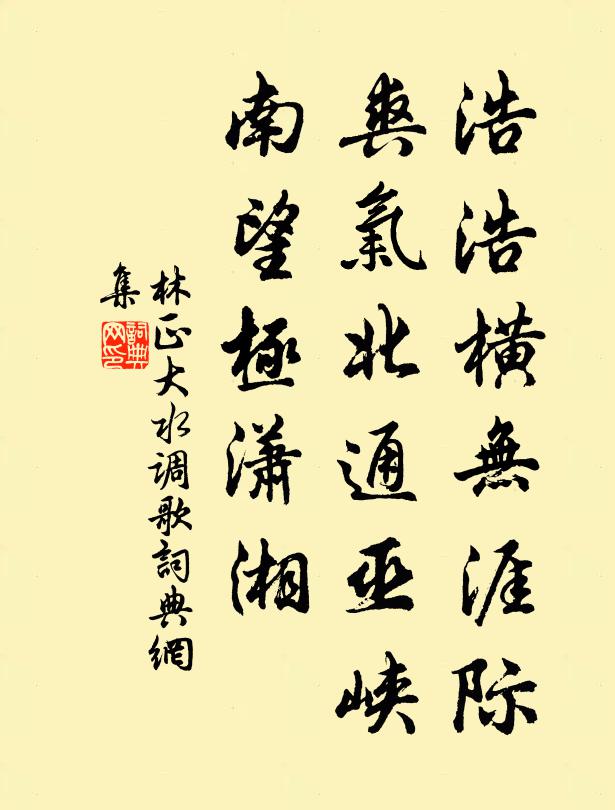 浩浩橫無涯际
爽氣北通巫峽
南望極潇湘
林正大水调歌詞典網
集
詞典
网印